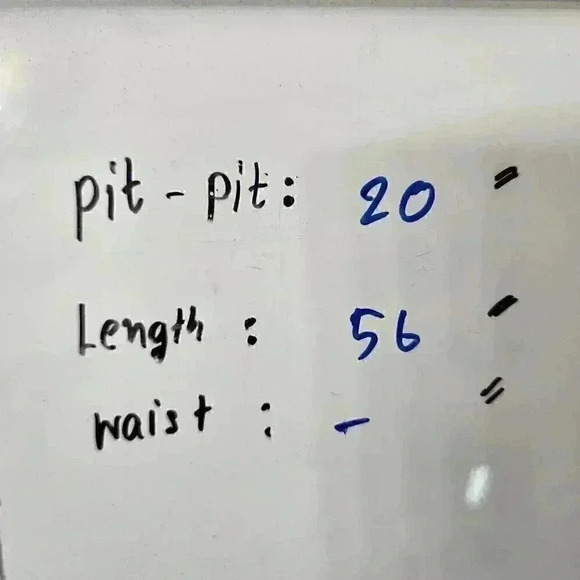 pit - pit: 20 "
Length : 56 "
waist : - "